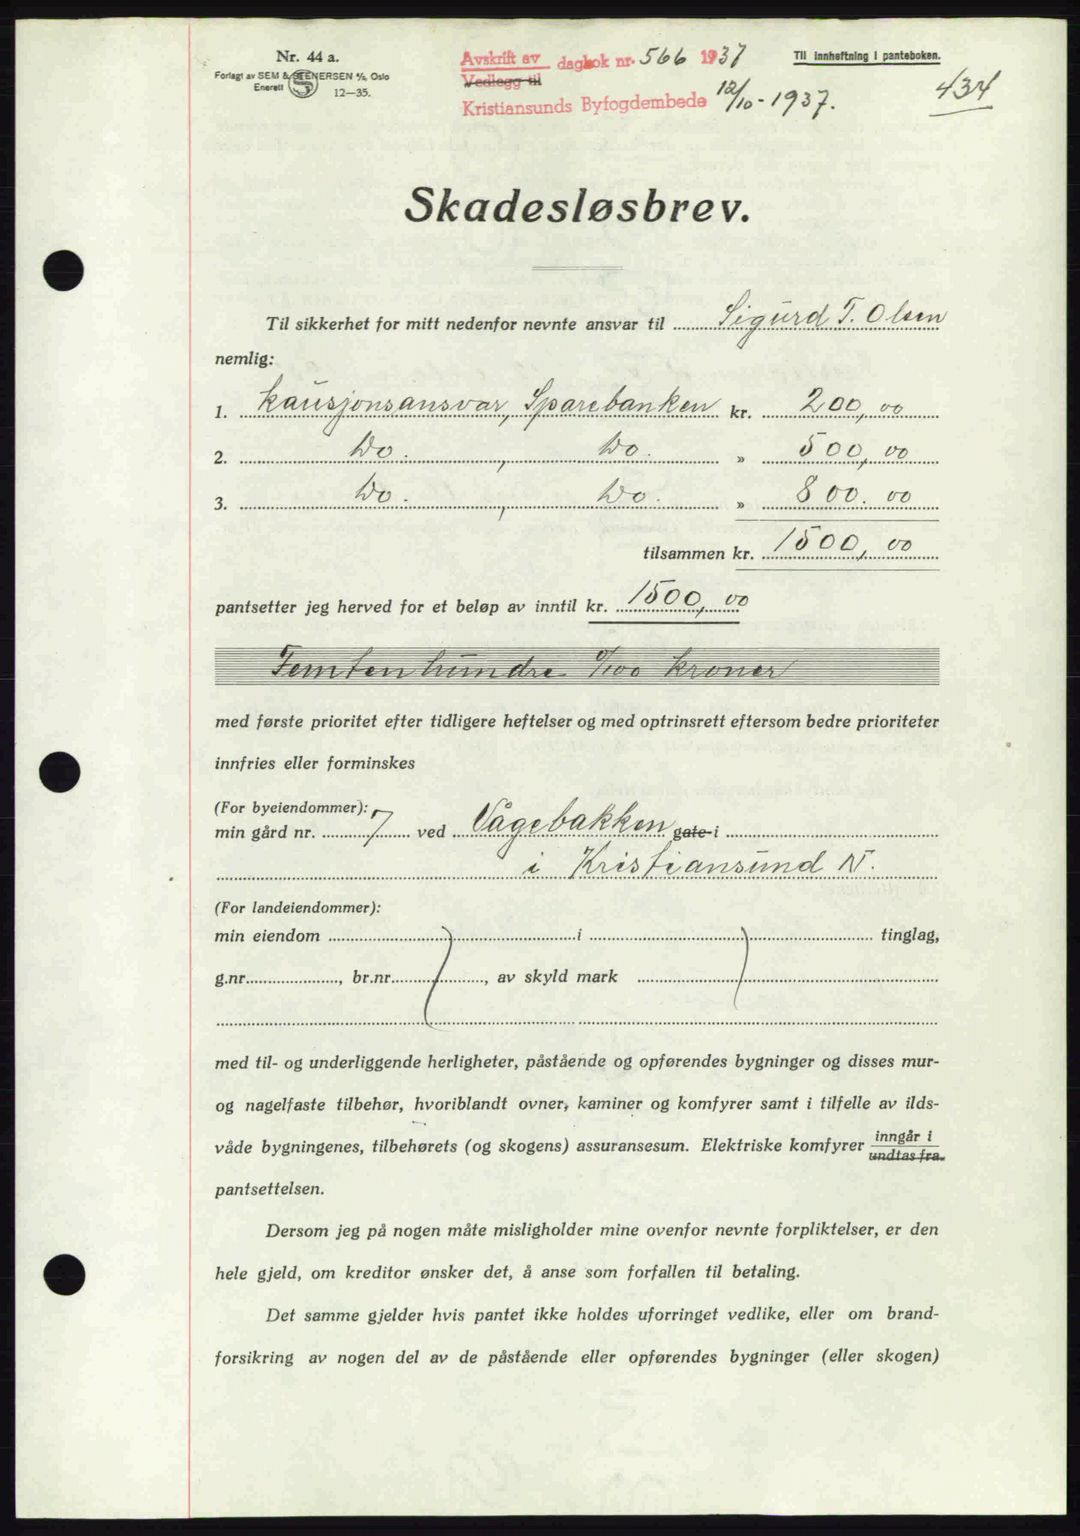 Nr. 44 a.
Forlagt av SEM & STENERSEN A/S, Oslo
Enerett 12—35.
Avskrift av dagbok nr. 566 1937
Vedlegg til
Kristiansunds Byfogdembede 12/10-1937.
Til innheftning i panteboken.
434
Skadesløsbrev.
Til sikkerhet for mitt nedenfor nevnte ansvar til Sigurd T. Olsen
nemlig:
1. Kausjonsansvar, Sparebanken kr. 200,00
2. Do. , Do. » 500,00
3. Do. , Do. » 800.00
tilsammen kr. 1500,00
pantsetter jeg herved for et beløp av inntil kr. 1500,00
Femtenhundre 0/100 kroner
med første prioritet efter tidligere heftelser og med optrinsrett eftersom bedre prioriteter
innfries eller forminskes
(For byeiendommer):
min gård nr. 7 ved Vågebakken gate i
i Kristiansund N.
(For landeiendommer):
min eiendom i tinglag,
g.nr. , br.nr. , av skyld mark
med til- og underliggende herligheter, påstående og opførendes bygninger og disses mur-
og nagelfaste tilbehør, hvoriblandt ovner, kaminer og komfyrer samt i tilfelle av ilds-
våde bygningenes, tilbehørets (og skogens) assuransesum. Elektriske komfyrer inngår i
undtas fra
pantsettelsen.
Dersom jeg på nogen måte misligholder mine ovenfor nevnte forpliktelser, er den
hele gjeld, om kreditor ønsker det, å anse som forfallen til betaling.
Det samme gjelder hvis pantet ikke holdes uforringet vedlike, eller om brand-
forsikring av nogen del av de påstående eller opførendes bygninger (eller skogen)